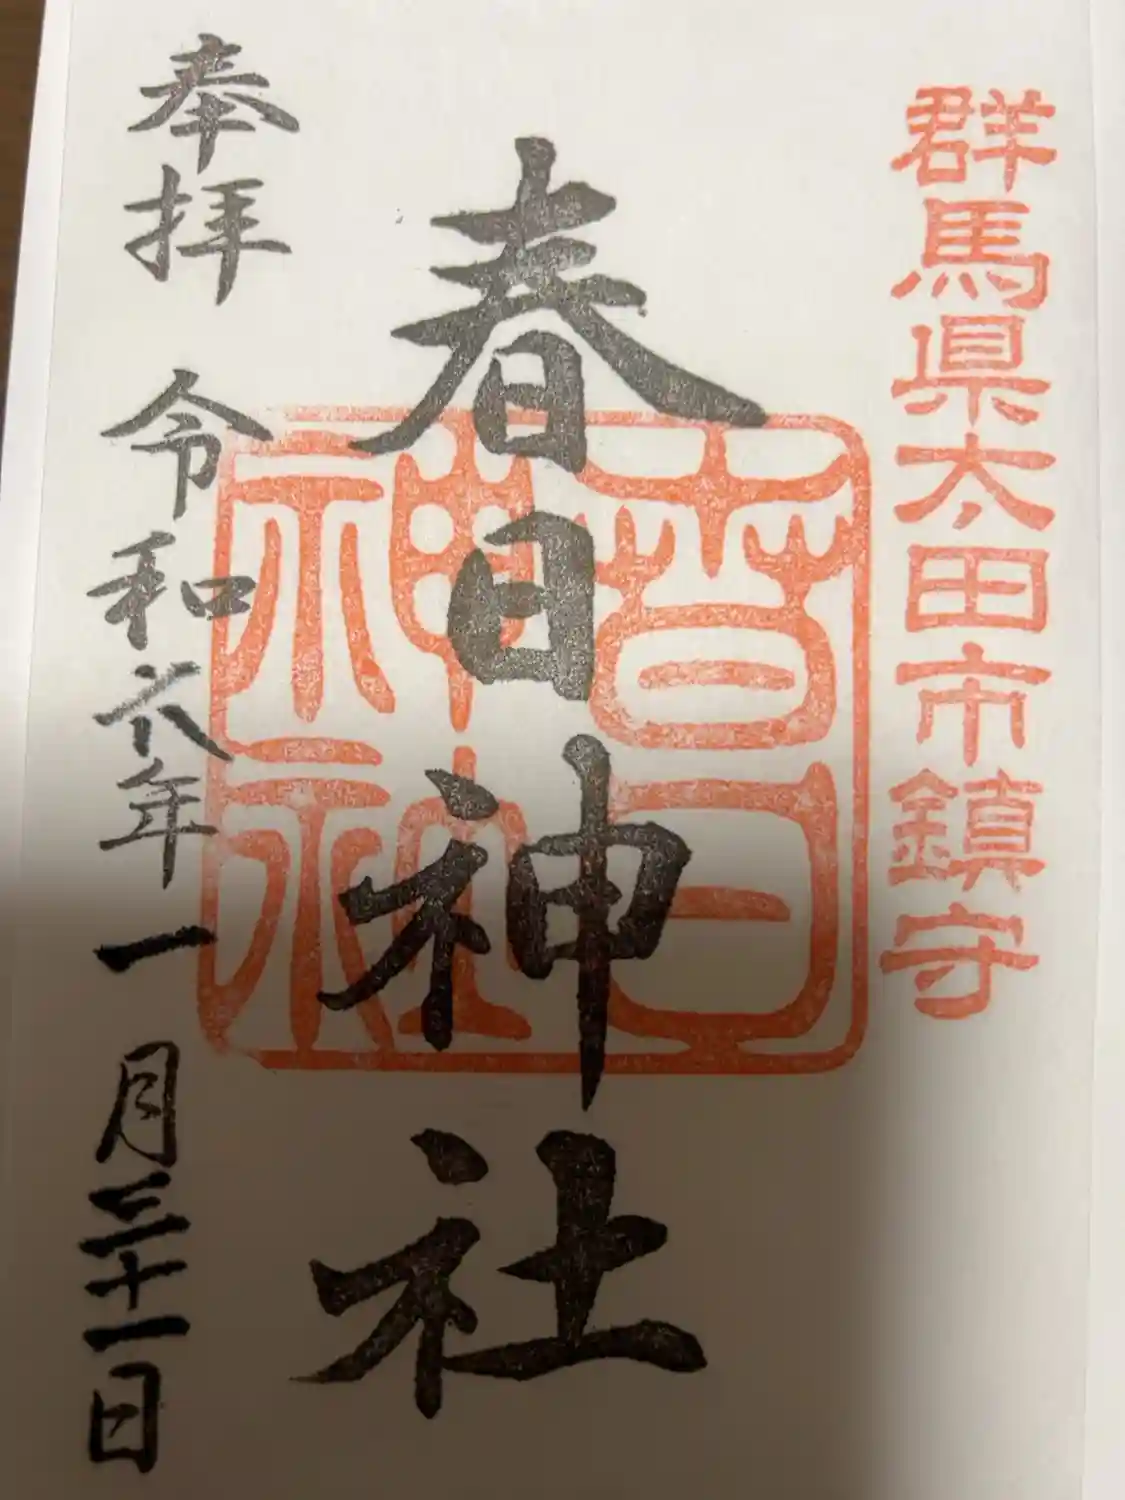 群馬県太田市鎮守
春日神社
春日
神社
奉拝 令和六年一月三十一日